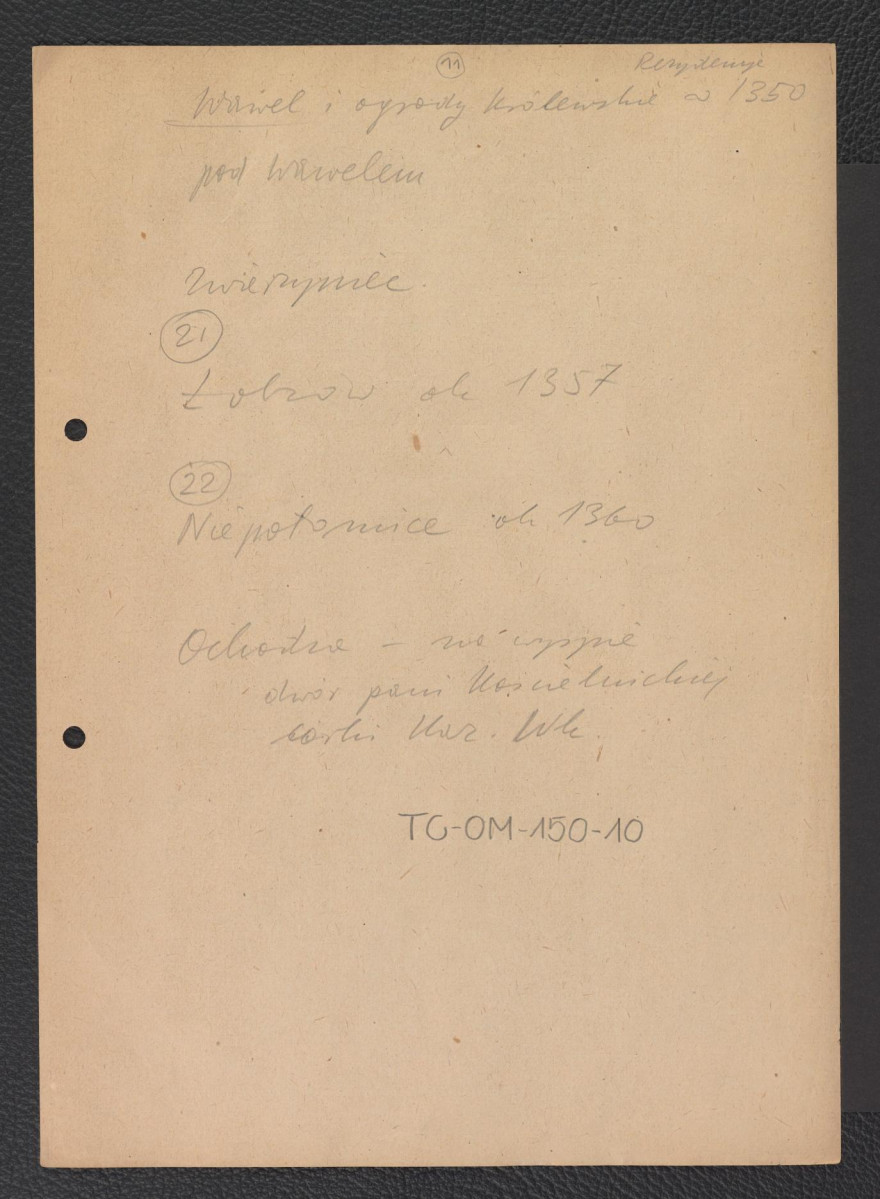 11
Rezydencje
Wawel i ogrody królewskie ∾ 1350
pod Wawelem
Zwierzyniec
21
Łobzów ok 1357
22
Niepołomice ok 1360
– na wyspie
dwór pani Kościelnickiej
córki Kaz. Wk.
TG-OM-150-10